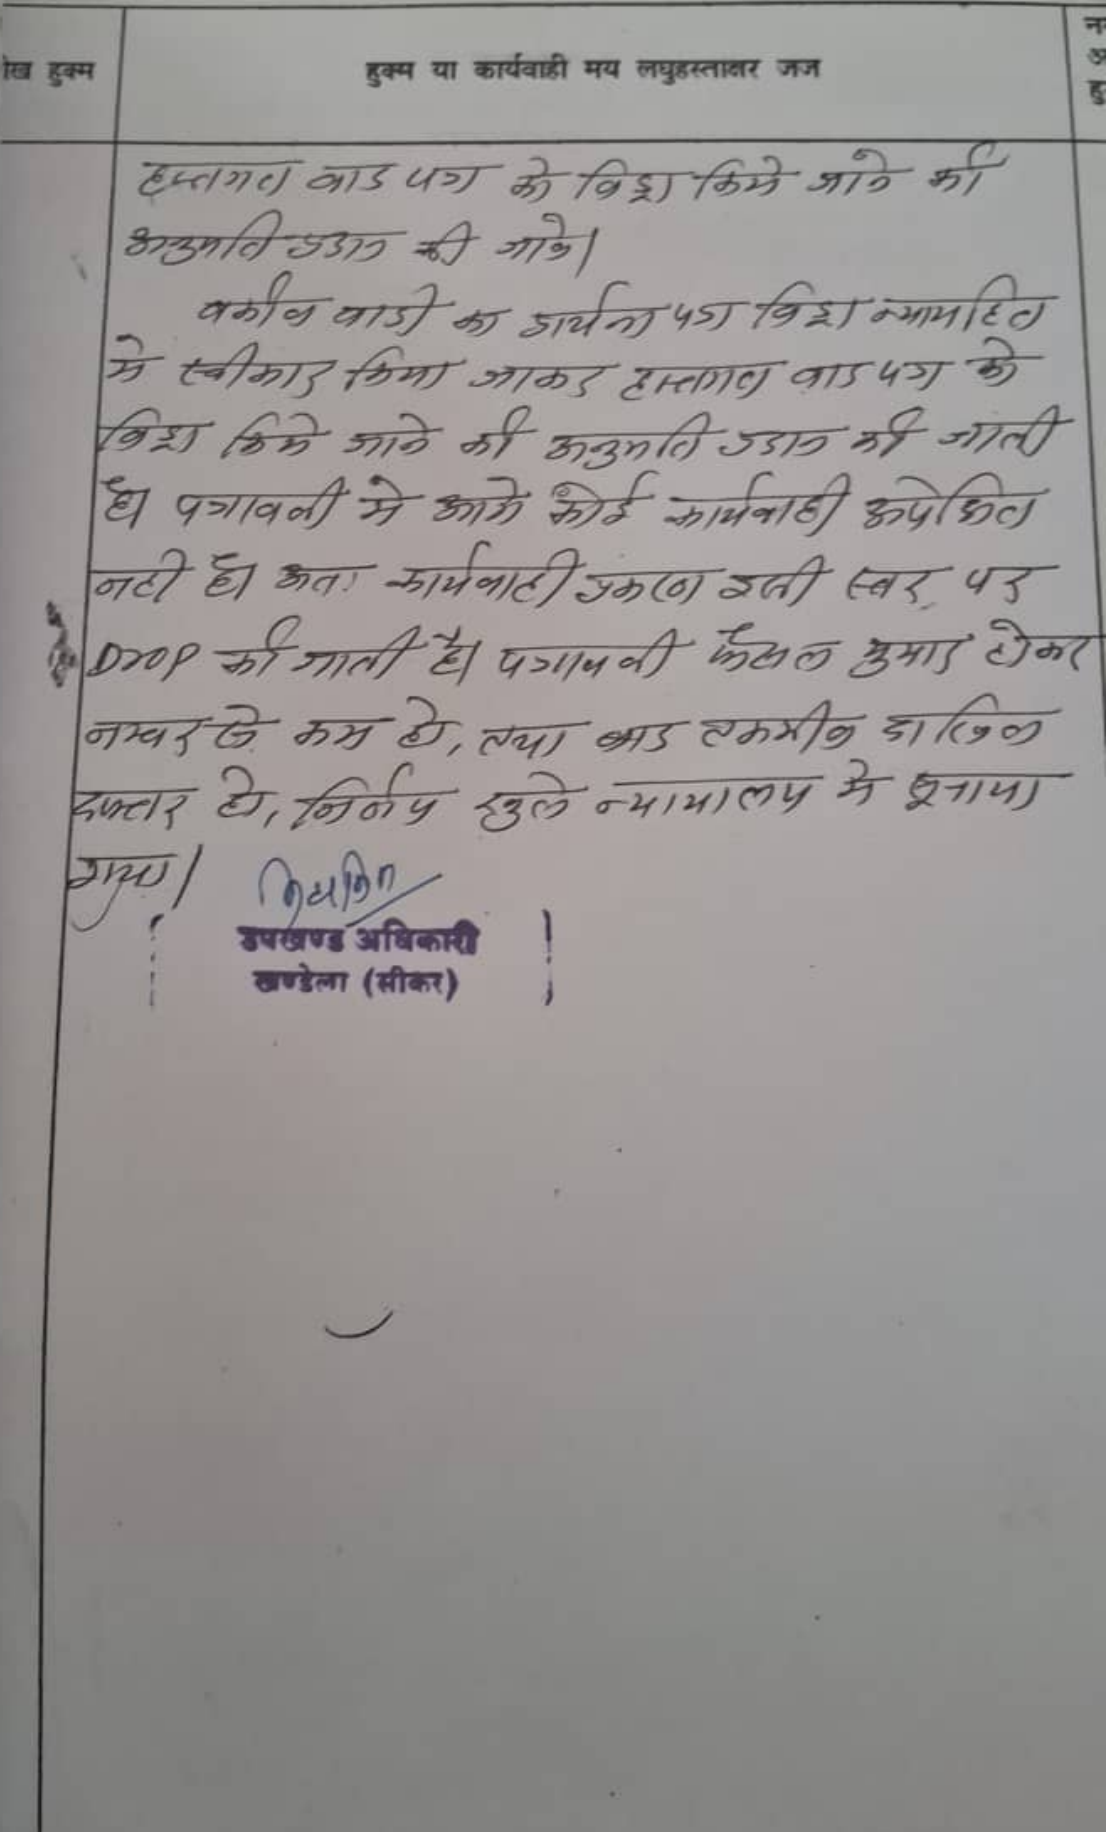 रीख हुक्म
हुक्म या कार्यवाही मय लघुहस्ताक्षर जज
हस्तगत वाद पत्र को विड्रा किये जाने की
अनुमति प्रदान की जावे।
वकील वादी का प्रार्थना पत्र विड्रा न्यायहित
मे स्वीकार किया जाकर हस्तगत वाद पत्र को
विड्रा किये जाने की अनुमति प्रदान की जाती
है। पत्रावली मे आगे कोई कार्यवाही अपेक्षित
नही है। अतः कार्यवाही प्रकरण इसी स्तर पर
Drop की जाती है। पत्रावली फैसल शुमार होकर
नम्बर से कम हो, तथा बाद तकमील दाखिल
दफ्तर हो, निर्णय खुले न्यायालय मे सूनाया
गया।
उपखण्ड अधिकारी
खण्डेला (सीकर)